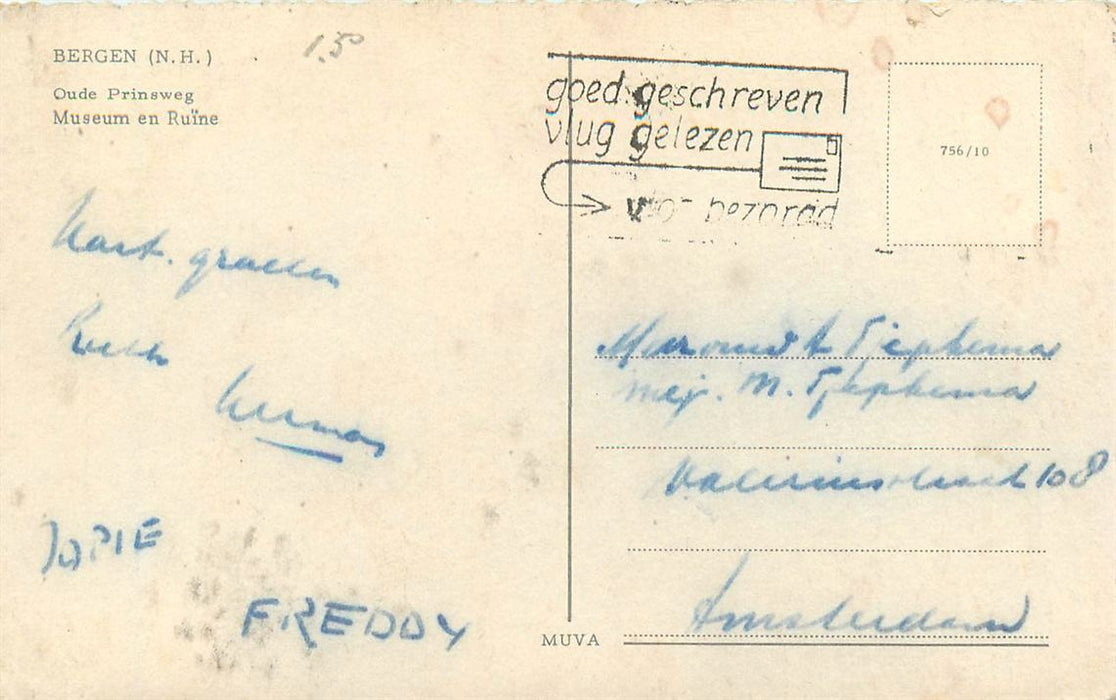 BERGEN (N.H.)
Oude Prinsweg
Museum en Ruïne
1.50
goed geschreven
vlug gelezen
vlot bezorgd
756/10
Hart. groeten
Herman
JOPIE
FREDDY
Tjepkema
mej. M. Tjepkema
Valeriusstraat 108
Amsterdam
MUVA